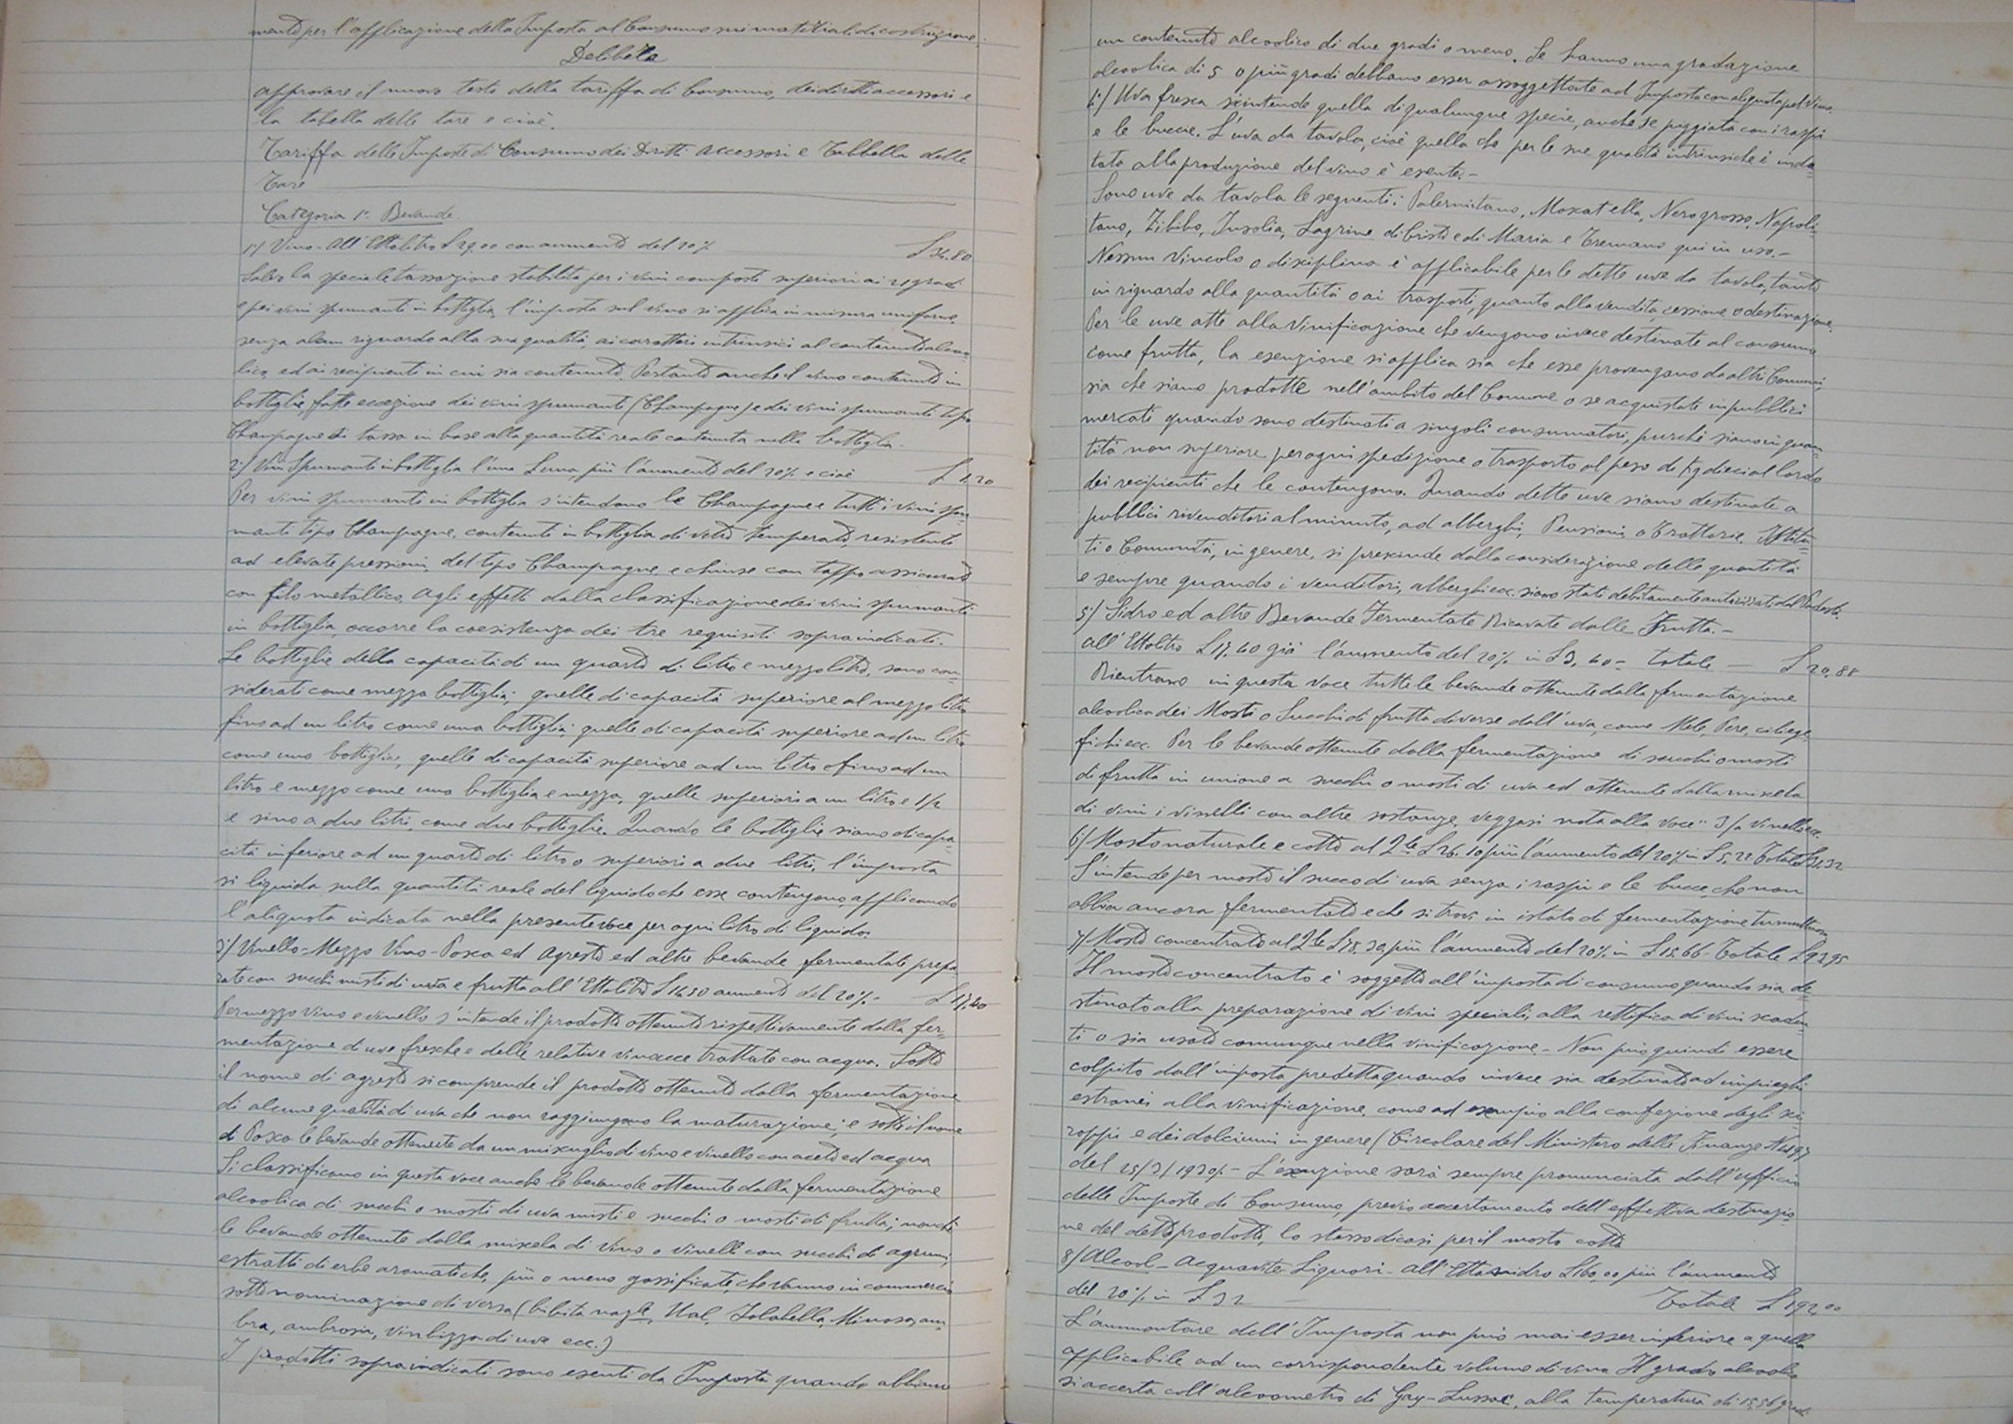 mento per l'applicazione della Imposta al Consumo sui materiali di costruzione.
Delibera
approvare il nuovo testo della tariffa di Consumo, dei diritti accessori e
la tabella delle tare e cioè.
Tariffa delle Imposte di Consumo dei Diritti accessori e Tabbella delle
Tare
Categoria 1ª Bevande
1°/ Vino - All'Ettolitro L 29.00 con aumento del 20% L 34.80
Salvo la speciale tassazione stabilita per i vini composti superiori ai gradi
e pei vini spumanti in bottiglia, l'imposta sul vino si applica in misura uniforme
senza alcun riguardo alla sua qualità, ai caratteri intrinsici al contenuto alcoo-
lico, ed ai recipienti in cui sia contenuto. Pertanto anche il vino contenuto in
bottiglie, fatte eccezione dei vini spumanti (Champagne) e dei vini spumanti tipo
Champagne si tassa in base alla quantità reale contenuta nella bottiglia.
2°/ Vini Spumanti in bottiglia l'una Luna, più l'aumento del 20% e cioè L 1,20
Per vini spumanti in bottiglia s'intendono lo Champagne e tutti i vini spu-
manti tipo Champagne, contenuti in bottiglia di vetro temperato, resistente
ad elevate pressioni del tipo Champagne e chiuse con tappo assicurato
con filo metallico. Agli effetti dalla classificazione dei vini spumanti
in bottiglia, occorre la coesistenza dei tre requisiti sopraindicati.
Le bottiglie della capacità di un quarto di litro e mezzo litro, sono con-
siderati come mezza bottiglia; quelle di capacità superiore al mezzo litro
fino ad un litro come una bottiglia; quelle di capacità superiore ad un litro
come una bottiglia, quelle di capacità superiore ad un litro e fino ad un
litro e mezzo come una bottiglia e mezza, quelle superiori a un litro e 1/2
e sino a due litri, come due bottiglie. Quando le bottiglie siano di capa
cità inferiore ad un quarto di litro o superiori a due litri, l'imposta
si liquida sulla quantità reale del liquido che esse contengono, applicando
l'aliquota indicata nella presente voce per ogni litro di liquido.
3°/ Vinello - Mezzo Vino - Posca ed Agresto ed altre bevande fermentate prepa-
rate con succhi misti di uva e frutta all'Ettolitro L 14.50 aumento del 20% - L 17,40
Per mezzo vino e vinello s'intende il prodotto ottenuto rispettivamente dalla fer-
mentazione di uve fresche e delle relative vinacce trattate con acqua. Sotto
il nome di agresto si comprende il prodotto ottenuto dalla fermentazione
di alcune qualità di uva che non raggiungono la maturazione; e sotto il nome
di Posca le bevande ottenute da un miscuglio di vino e vinello con aceto ed acqua
Si classificano in questa voce anche le bevande ottenute dalla fermentazione
alcoolica di succhi o mosti di uva misti e succhi o mosti di frutta; nonchè
le bevande ottenute dalla miscela di vino o vinelli con succhi di agrumi,
estratti di erbe aromatiche, più o meno gassificate, che vanno in commercio
sotto nominazione diversa (bibita Ual, Iolabella, Mimosa, am-
bra, ambrosia, di uva ecc.)
I prodotti sopraindicati sono esenti da Imposta quando abbiano
un contenuto alcoolico di due gradi o meno. Se hanno una gradazione
alcoolica di 5 o più gradi debbano esser assoggettate ad Imposta con aliquota pel vino.
4°/ Uva fresca s'intende quella di qualunque specie, anche se poggiata con i raspi
e le bucce. L'uva da tavola, cioè quella che per le sue qualità intrinsiche è inda
tata alla produzione del vino è esente.-
Sono uve da tavola le seguenti: Palermitano, Moscatella, Nero grosso, Napoli-
tano, Zibibo, Insolia, Lagrime di Cristo e di Maria e Tremano qui in uso.-
Nessun vincolo o disciplina è applicabile per le dette uve da tavola, tanto
in riguardo alla quantità o ai trasporti, quanto alla vendita cessione o destinazione.
Per le uve atte alla vinificazione che vengono invece destinate al consumo
come frutta, la esenzione si applica sia che esse provengano da altri Comuni
sia che siano prodotte nell'ambito del Comune o se acquistate in pubblici
mercati quando sono destinati a singoli consumatori, purchè siano in quan-
tità non superiore per ogni spedizione o trasporto al peso di Kg dieci al lordo
dei recipienti che le contengono. Quando dette uve siano destinate a
pubblici rivenditori al minuto, ad alberghi, Pensioni, o Trattorie, Istitu-
ti o Comunità, in genere, si prescinde dalla considerazione delle quantità
e sempre quando i venditori, alberghi ecc. siano stati debitamente autorizzati dal Podestà.
5°/ Sidro ed altre Bevande Fermentate Ricavate dalle Frutta.-
all'Ettolitro L 17.40 più l'aumento del 20% in L 3,40 - totale - L 20,88
Rientrano in questa voce tutte le bevande ottenute dalla fermentazione
alcoolica dei Mosti o Succhi di frutta diverse dall'uva, come Mele, Pere, ciliege
fichi ecc. Per le bevande ottenute dalla fermentazione di succhi o mosti
di frutta in unione a succhi o mosti di uva ed ottenute dalla miscela
di vini i vinelli con altre sostanze, veggasi nota alla voce " 3/a vinello ecc.
6°/ Mosto naturale e cotto al Q.le L 26.10 più l'aumento del 20% in L 5.22 Totale L 31,32
S'intende per mosto il succo di uva senza i raspi e le bucce, che non
abbia ancora fermentato e che si trovi in istato di fermentazione tumultuosa
7°/ Mosto concentrato al Q.le L 78.30 più l'aumento del 20% in L 15.66 - Totale L 93,95
Il mosto concentrato è soggetto all'imposta di consumo quando sia de-
stinato alla preparazione di vini speciali, alla rettifica di vini scaden-
ti o sia usato comunque nella vinificazione - Non può quindi essere
colpito dall'imposta predetta quando invece sia destinato ad impieghi
estranei alla vinificazione, come ad esempio alla confezione degli sci
roppi e dei dolciumi in genere (Circolare del Ministero delle Finanze N
del 25/3/1930/. - L'esenzione sarà sempre pronunciata dall'ufficio
delle Imposte di Consumo, previo accertamento dell'effettiva destinazio
ne del detto prodotto, lo stesso dicasi per il mosto cotto
8°/ Alcool - Acquavite Liquori - All'Ettanidro L 160,00 più l'aumento
del 20% in L 32 Totale L 192,00
L'ammontare dell'Imposta non può mai esser inferiore a quella
applicabile ad un corrispondente volume di vino. Il grado alcoolico
si accerta coll'alcoometro di Gay-Lussac, alla temperatura di 15,56 gradi